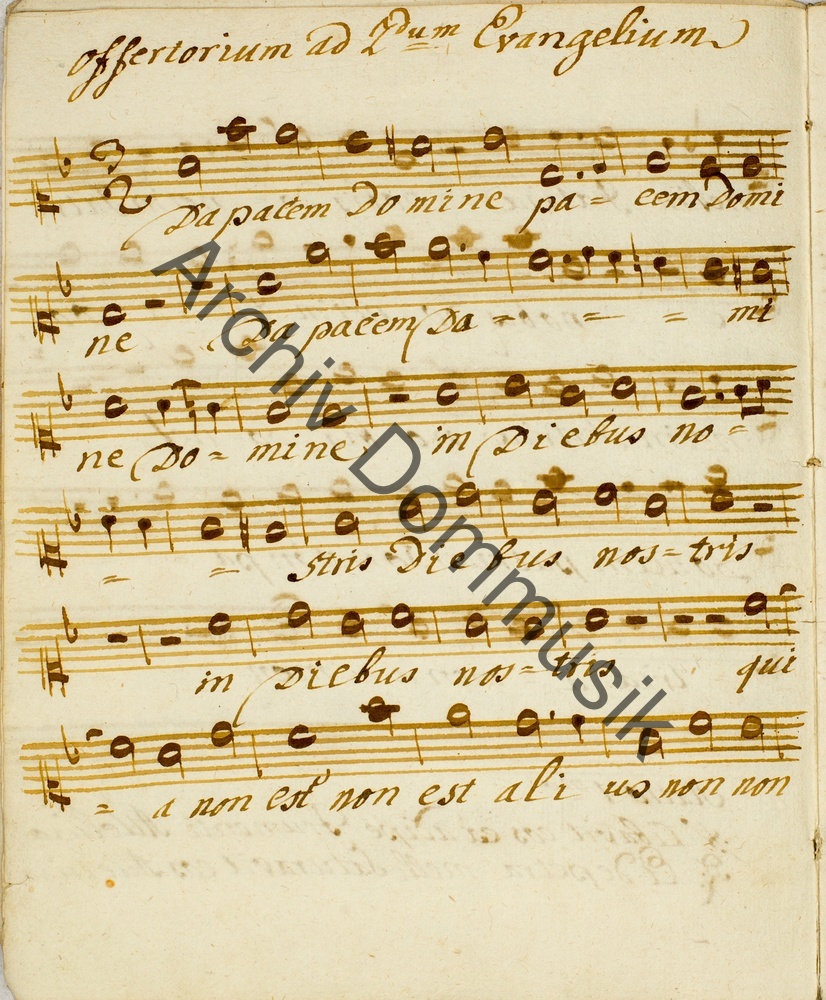 offertorium ad 2dum Evangelium
3
2
Da pacem Domine pa = cem Domi
ne Da pacem Da = = = mi
ne Do = mine in Diebus no =
= = stris Diebus nos = tris
in Diebus nos = tris qui
= a non est non est ali us non non
Archiv Dommusik